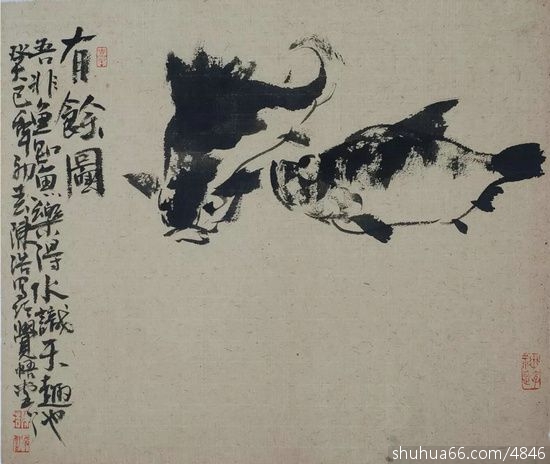 有餘圖
吾非魚知魚樂得水識天趣也
癸巳年初吉陳浩寫於覺悟堂
shuhua66.com/4846